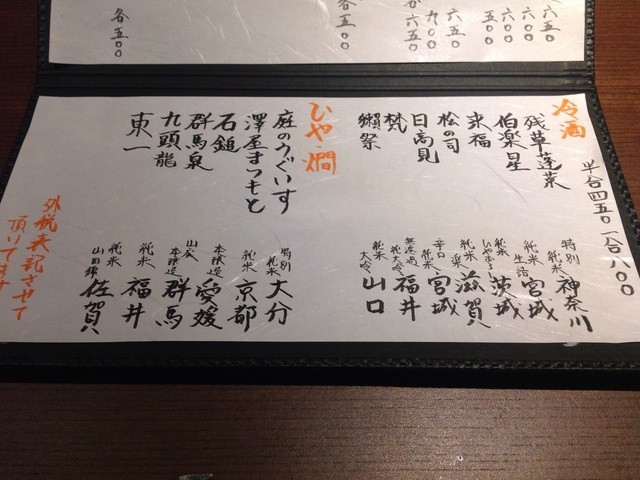 六五〇
六〇〇
六〇〇
五〇〇
六五〇
九〇〇
六五〇
各五〇〇
各五〇〇
冷酒
半合四五〇 一合八〇〇
残草蓬莱 特別純米 神奈川
伯楽星 純米 宮城
来福 純米生酒 茨城
松の司 純米 楽 滋賀
日高見 辛口純米 宮城
梵 無濾過純米大吟 福井
獺祭 純米大吟 山口
ひや・燗
庭のうぐいす 特別純米 大分
澤屋まつもと 純米 京都
石鎚 本醸造 愛媛
群馬泉 山廃本醸造 群馬
九頭龍 純米 福井
東一 純米山田錦 佐賀
外税表記させて
頂いてます